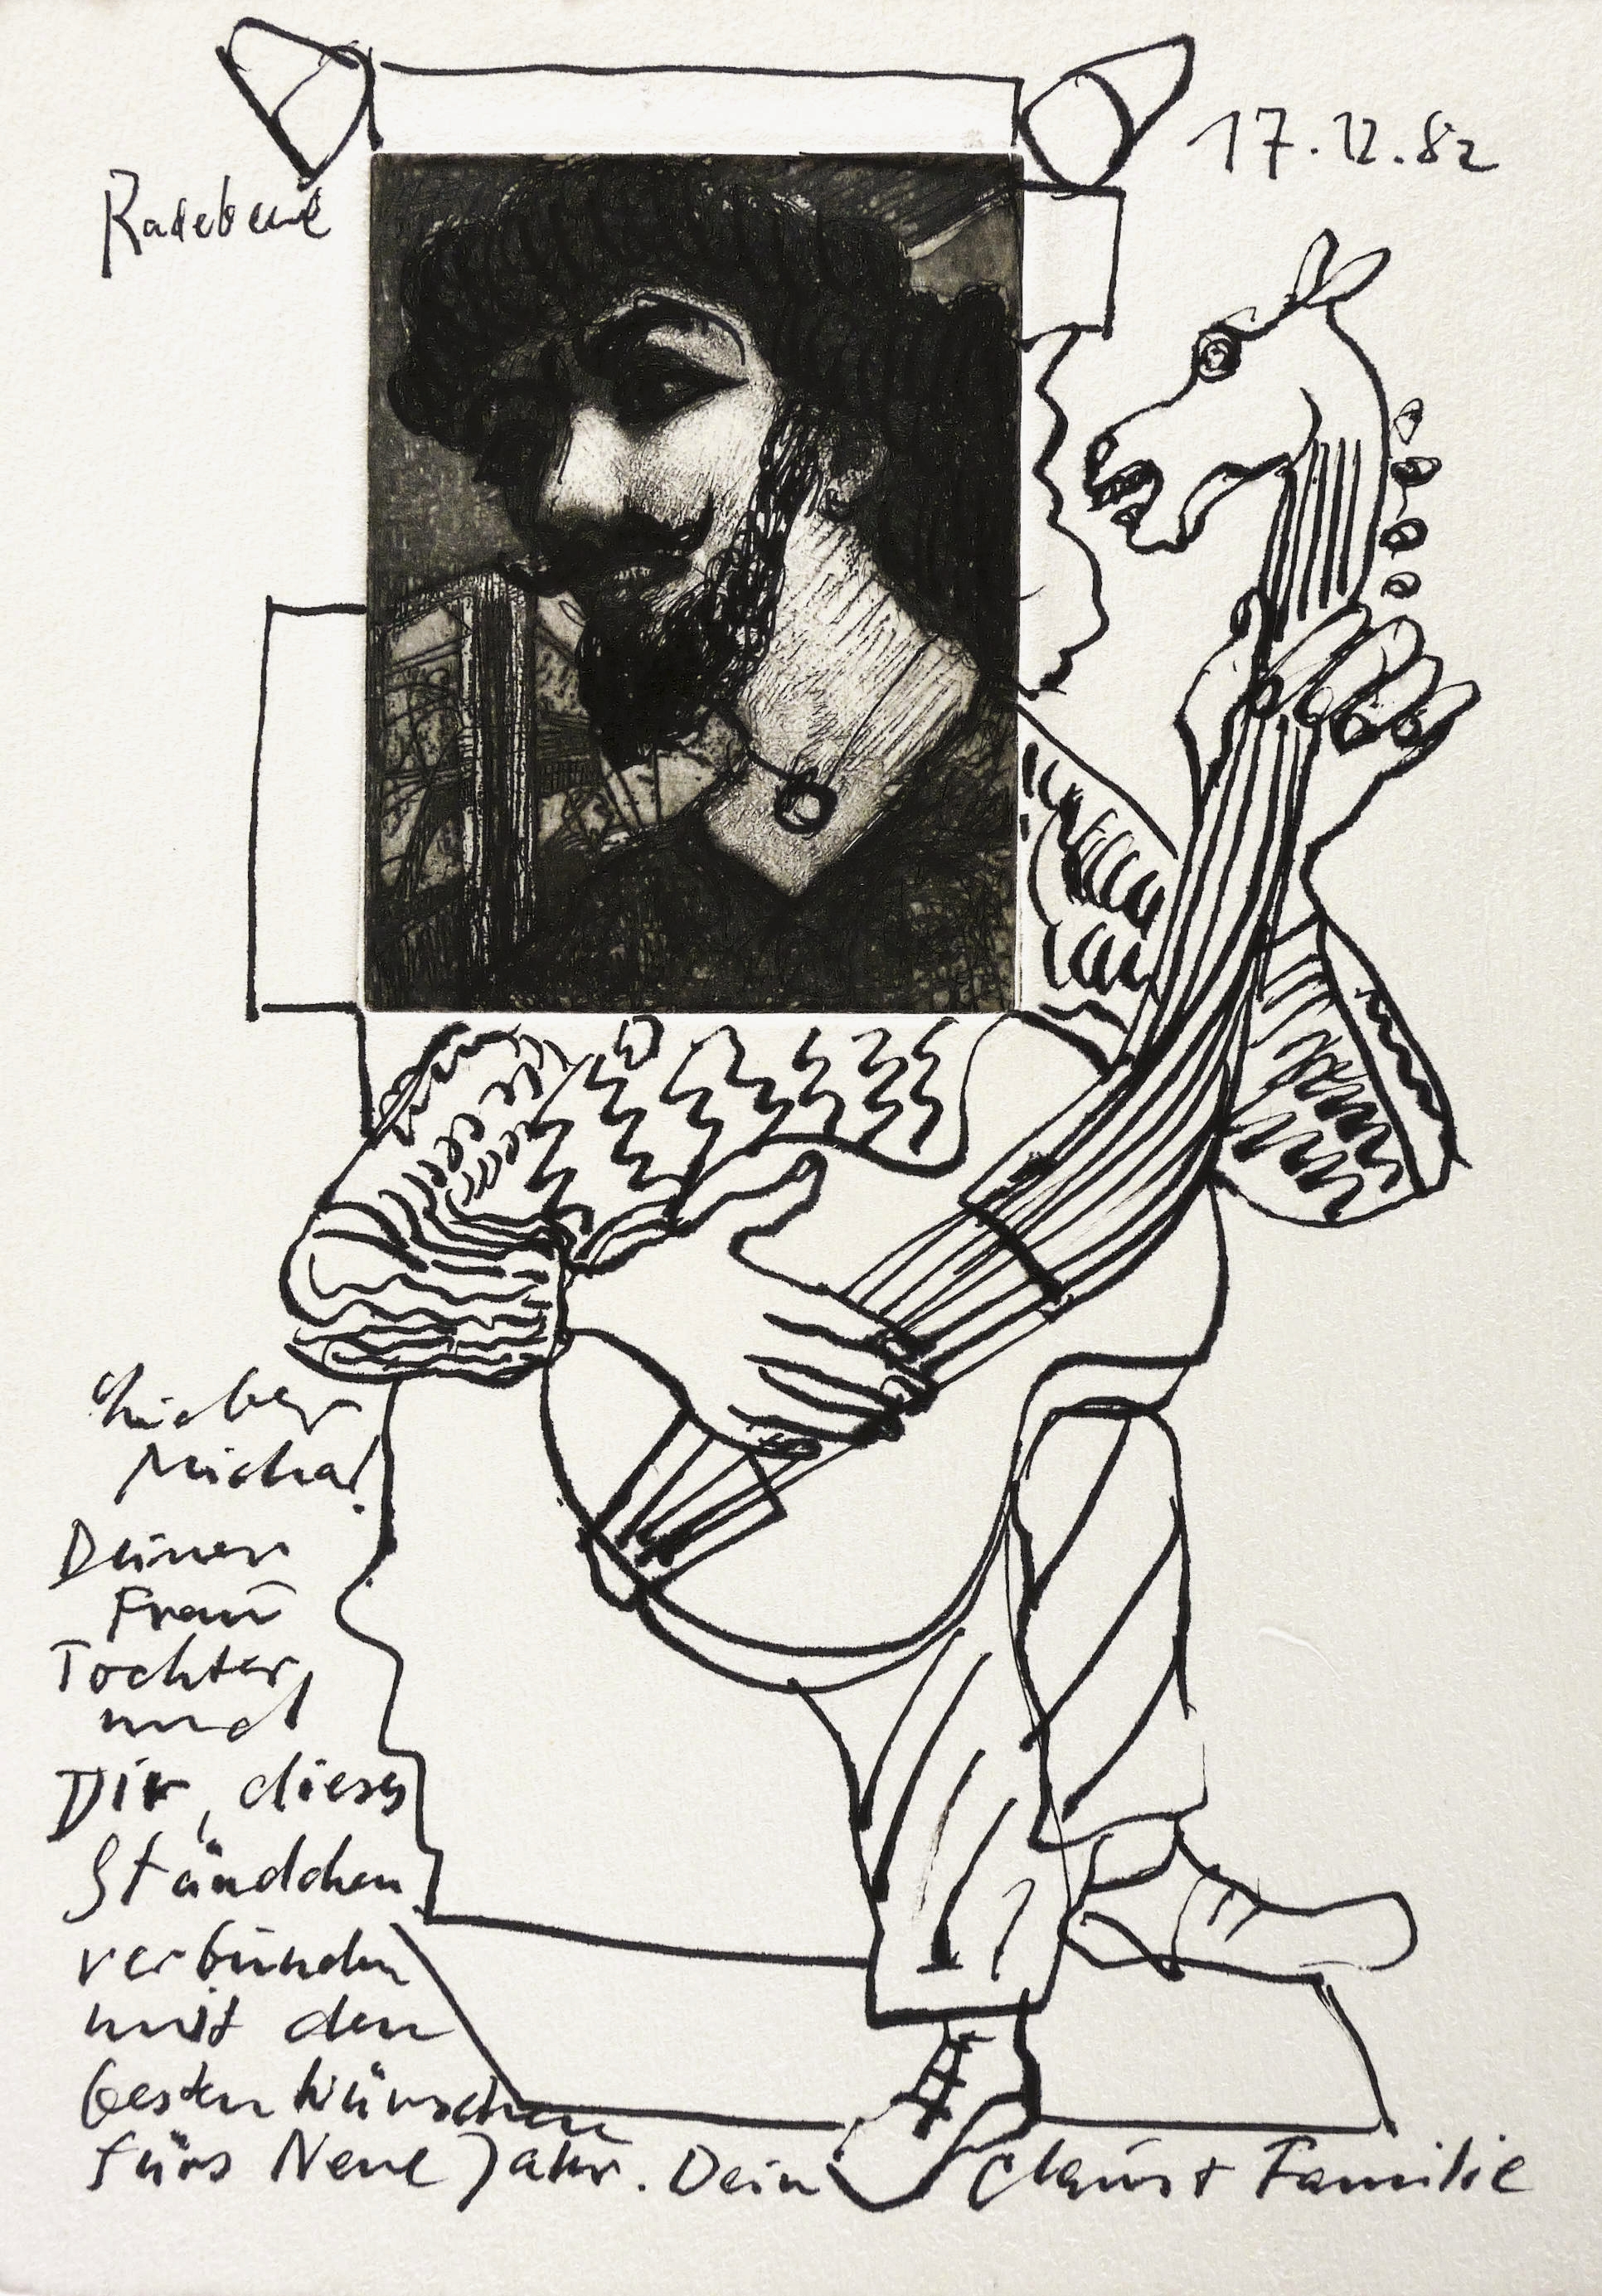 17.12.82
Radebeul
Lieber
Michael
Deiner
Frau
Tochter
und
Dir, dieses
Ständchen
verbunden
mit den
besten Wünschen
fürs Neue Jahr. Dein Claus + Familie